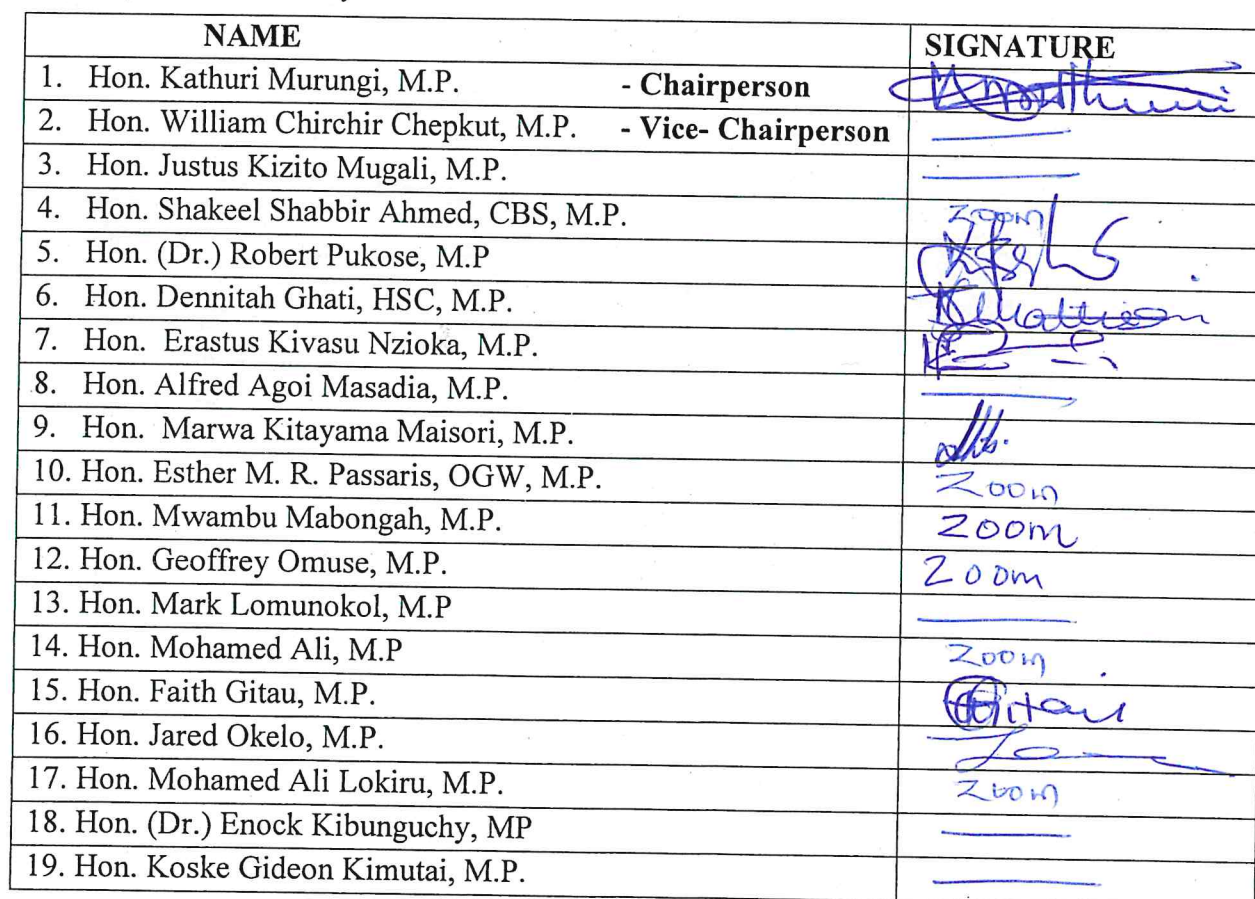 NAME SIGNATURE
1. Hon. Kathuri Murungi, M.P. - Chairperson
2. Hon. William Chirchir Chepkut, M.P. - Vice- Chairperson
3. Hon. Justus Kizito Mugali, M.P.
4. Hon. Shakeel Shabbir Ahmed, CBS, M.P. Zoom
5. Hon. (Dr.) Robert Pukose, M.P
6. Hon. Dennitah Ghati, HSC, M.P.
7. Hon. Erastus Kivasu Nzioka, M.P.
8. Hon. Alfred Agoi Masadia, M.P.
9. Hon. Marwa Kitayama Maisori, M.P.
10. Hon. Esther M. R. Passaris, OGW, M.P. Zoom
11. Hon. Mwambu Mabongah, M.P. Zoom
12. Hon. Geoffrey Omuse, M.P. Zoom
13. Hon. Mark Lomunokol, M.P
14. Hon. Mohamed Ali, M.P Zoom
15. Hon. Faith Gitau, M.P.
16. Hon. Jared Okelo, M.P.
17. Hon. Mohamed Ali Lokiru, M.P. Zoom
18. Hon. (Dr.) Enock Kibunguchy, MP
19. Hon. Koske Gideon Kimutai, M.P.